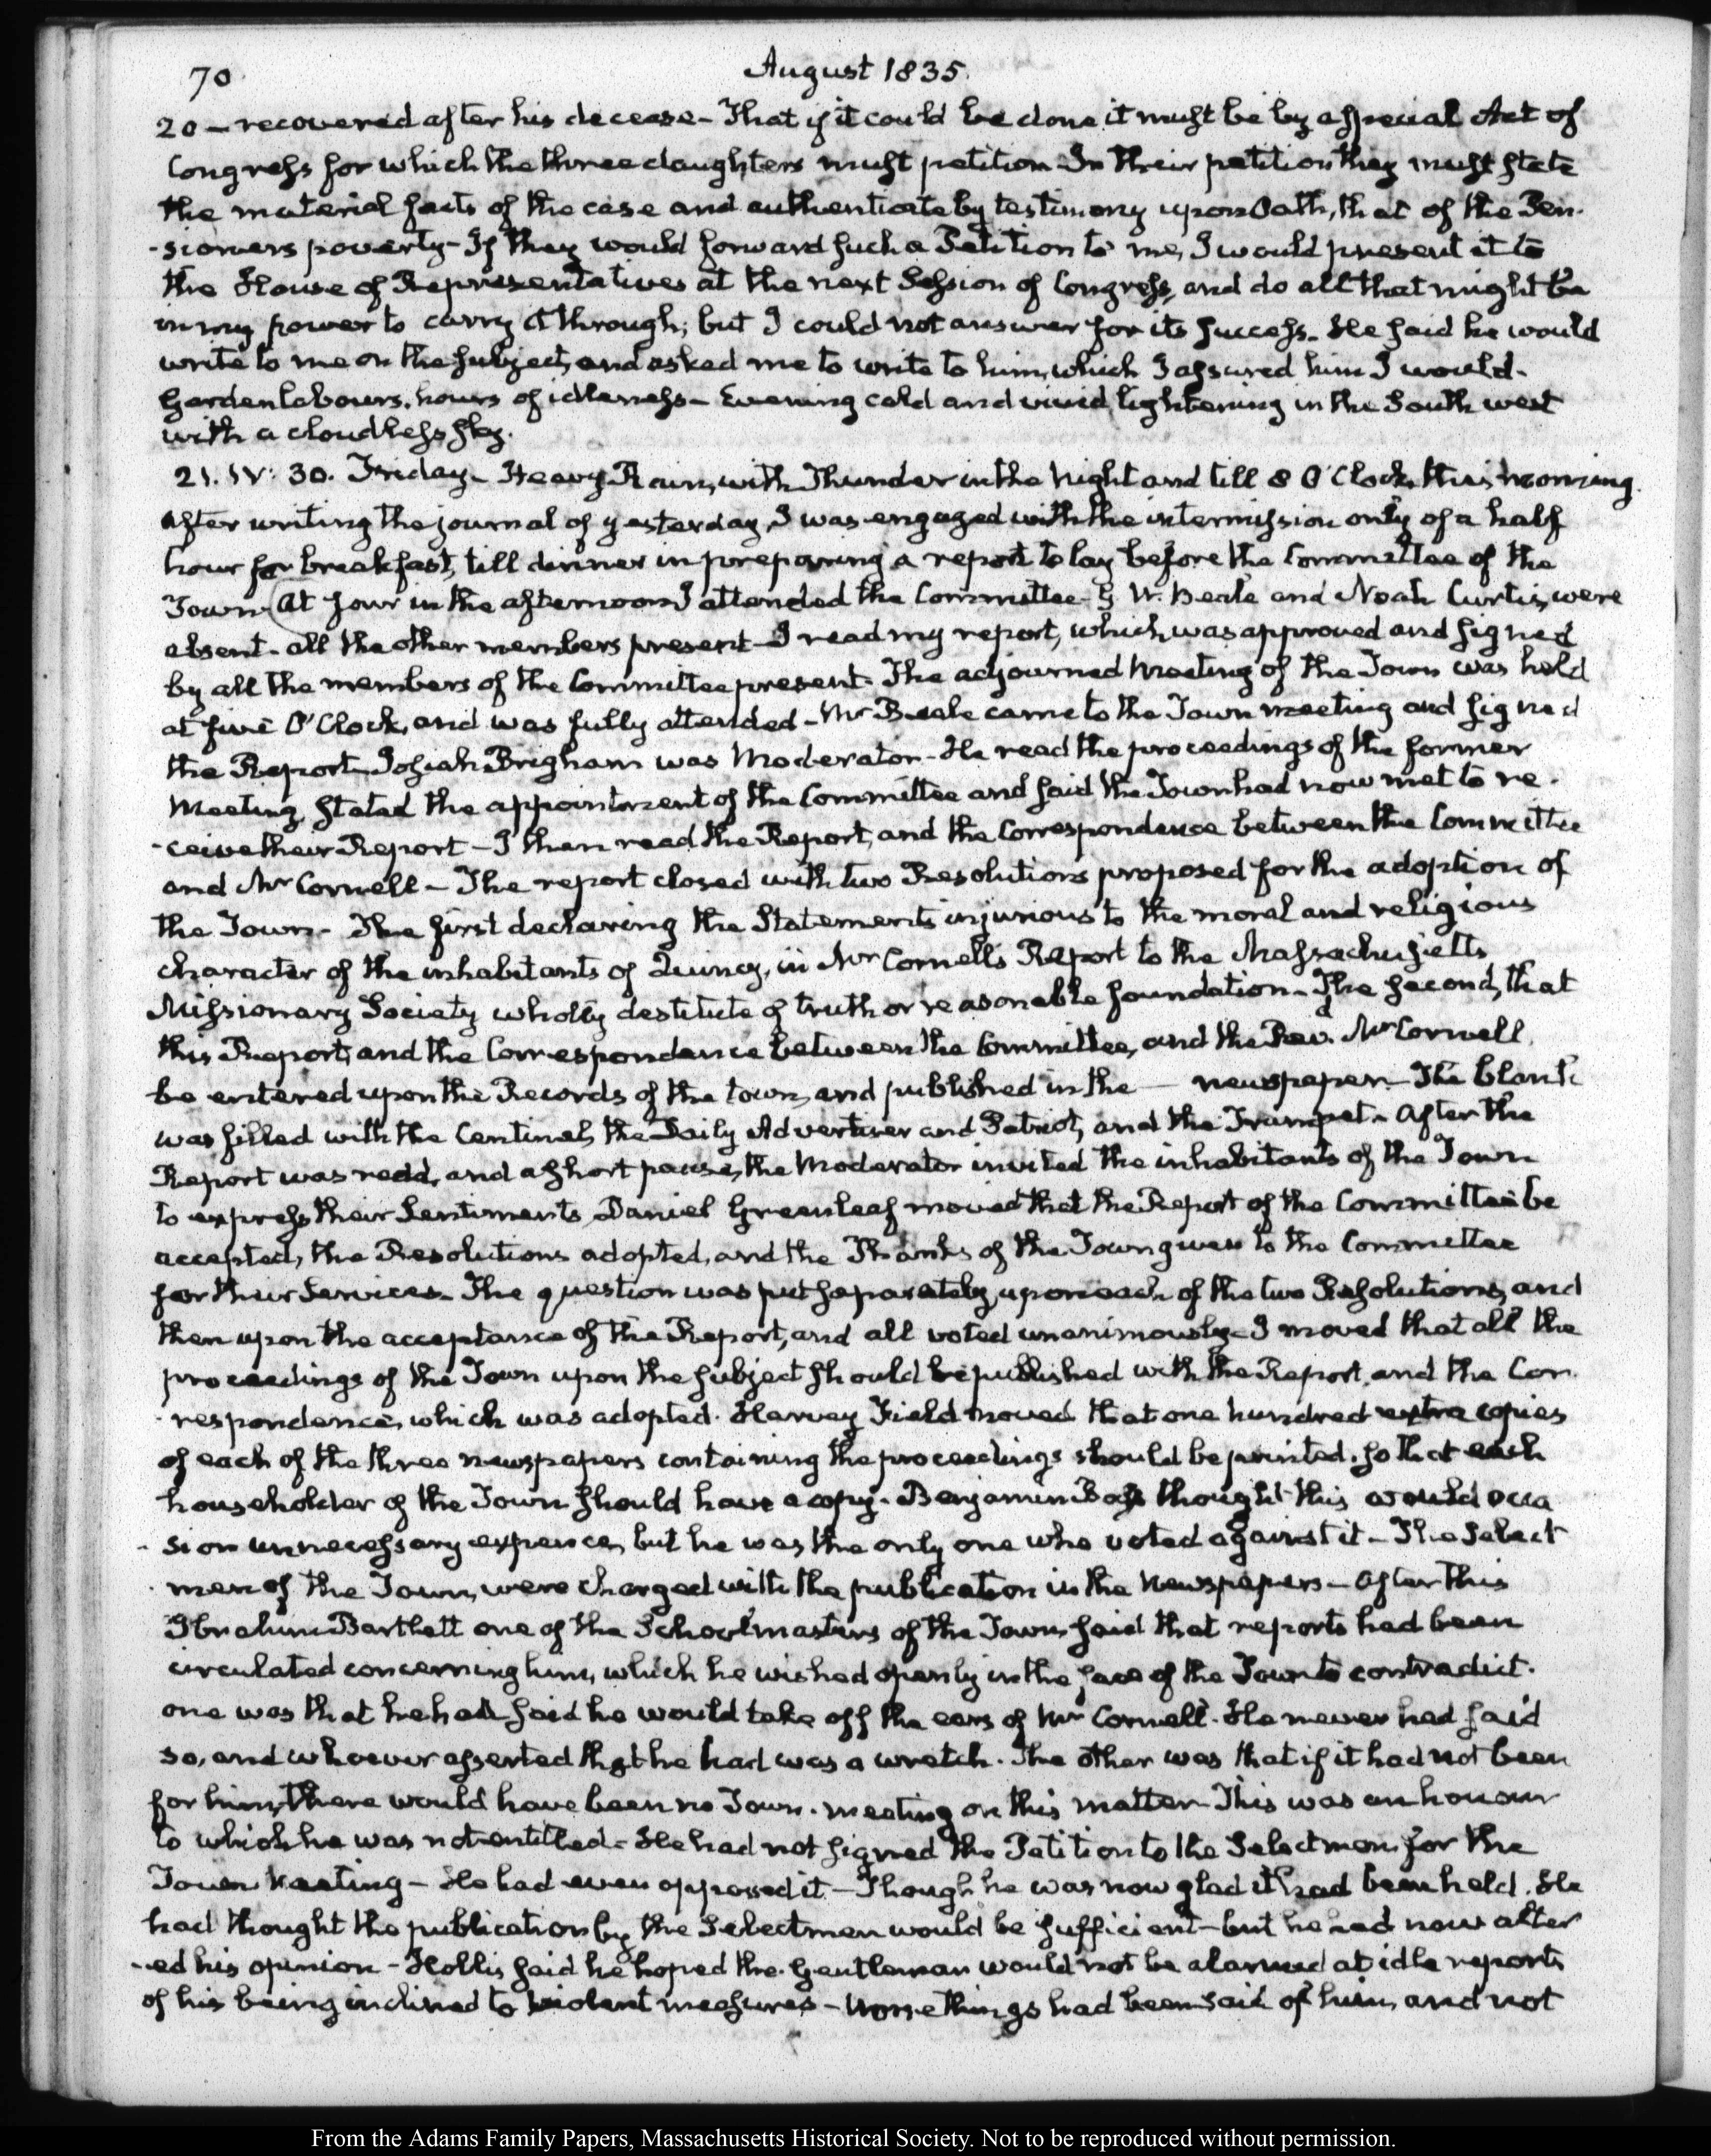 70
August 1835.
20 – recovered after his decease – That if it could be done it must be by a special Act of
Congress for which the three daughters must petition – In their petition they must state
the material facts of the case and authenticate by testimony upon Oath, that of the Pen-
-sioners poverty – If they would forward such a Petition to me, I would present it to
the House of Representatives at the next Session of Congress, and do all that might be
in my power to carry it through; but I could not answer for its success. He said he would
write to me on the subject, and asked me to write to him, which I assured him I would.
Garden labours. hours of idleness – Evening cold and vivid lightening in the South west
with a cloudless sky.
21. IV: 30. Friday – Heavy Rain, with Thunder in the Night and till 8 O'Clock, this morning.
After writing the journal of yesterday, I was engaged with the intermission only of a half
hour for breakfast, till dinner in preparing a report to lay before the Committee of the
Town. At four in the afternoon I attended the Committee – G W. Beale and Noah Curtis, were
absent – all the other members present – I read my report, which was approved and signed
by all the members of the Committee present. The adjourned Meeting of the Town was held
at five O'Clock, and was fully attended – Mr Beale came to the Town meeting and signed
the Report – Josiah Brigham was Moderator – He read the proceedings of the former
Meeting, stated the appointment of the Committee and said the Town had now met to re-
-ceive their Report – I then read the Report, and the Correspondence between the Committee
and Mr Cornell – The report closed with two Resolutions proposed for the adoption of
the Town – The first declaring the Statements injurious to the moral and religious
character of the inhabitants of Quincy, in Mr Cornell's Report to the Massachusetts
Missionary Society wholly destitute of truth or reasonable foundation – The second, that
this Report, and the Correspondence between the Committee, and the Revd. Mr Cornell,
be entered upon the Records of the town, and published in the — newspaper – The blank
was filled with the Centinel, the Daily Advertiser and Patriot, and the Trumpet – After the
Report was read, and a short pause, the Moderator invited the inhabitants of the Town
to express their Sentiments, Daniel Greenleaf moved that the Report of the Committee be
accepted, the Resolutions adopted, and the Thanks of the Town given to the Committee
for their Services – The question was put separately, upon each of the two Resolutions, and
then upon the acceptance of the Report, and all voted unanimously – I moved that all the
proceedings of the Town upon the subject should be published with the Report, and the Cor-
-respondence, which was adopted. Harvey Field moved that one hundred extra copies
of each of the three newspapers containing the proceedings should be printed, so that each
householder of the Town should have a copy. Benjamin Bass thought this would occa
-sion unnecessary expence, but he was the only one who voted against it – The Select
-men of the Town, were charged with the publication in the Newspapers – After this
Ibrahim Bartlett one of the Schoolmasters of the Town, said that reports had been
circulated concerning him, which he wished openly in the face of the Town to contradict.
one was that he had said he would take off the ears of Mr Cornell. He never had said
so, and whoever asserted that he had was a wretch. The other was that if it had not been
for him, there would have been no Town-meeting on this matter – This was an honour
to which he was not entitled – He had not signed the Petition to the Selectmen for the
Town Meeting – He had even opposed it – Though he was now glad it had been held. He
had thought the publication by the Selectmen would be sufficient – but he had now alter
-ed his opinion – Hollis said he hoped the Gentleman would not be alarmed at idle reports
of his being inclined to violent measures – worse things had been said of him, and not
From the Adams Family Papers, Massachusetts Historical Society. Not to be reproduced without permission.